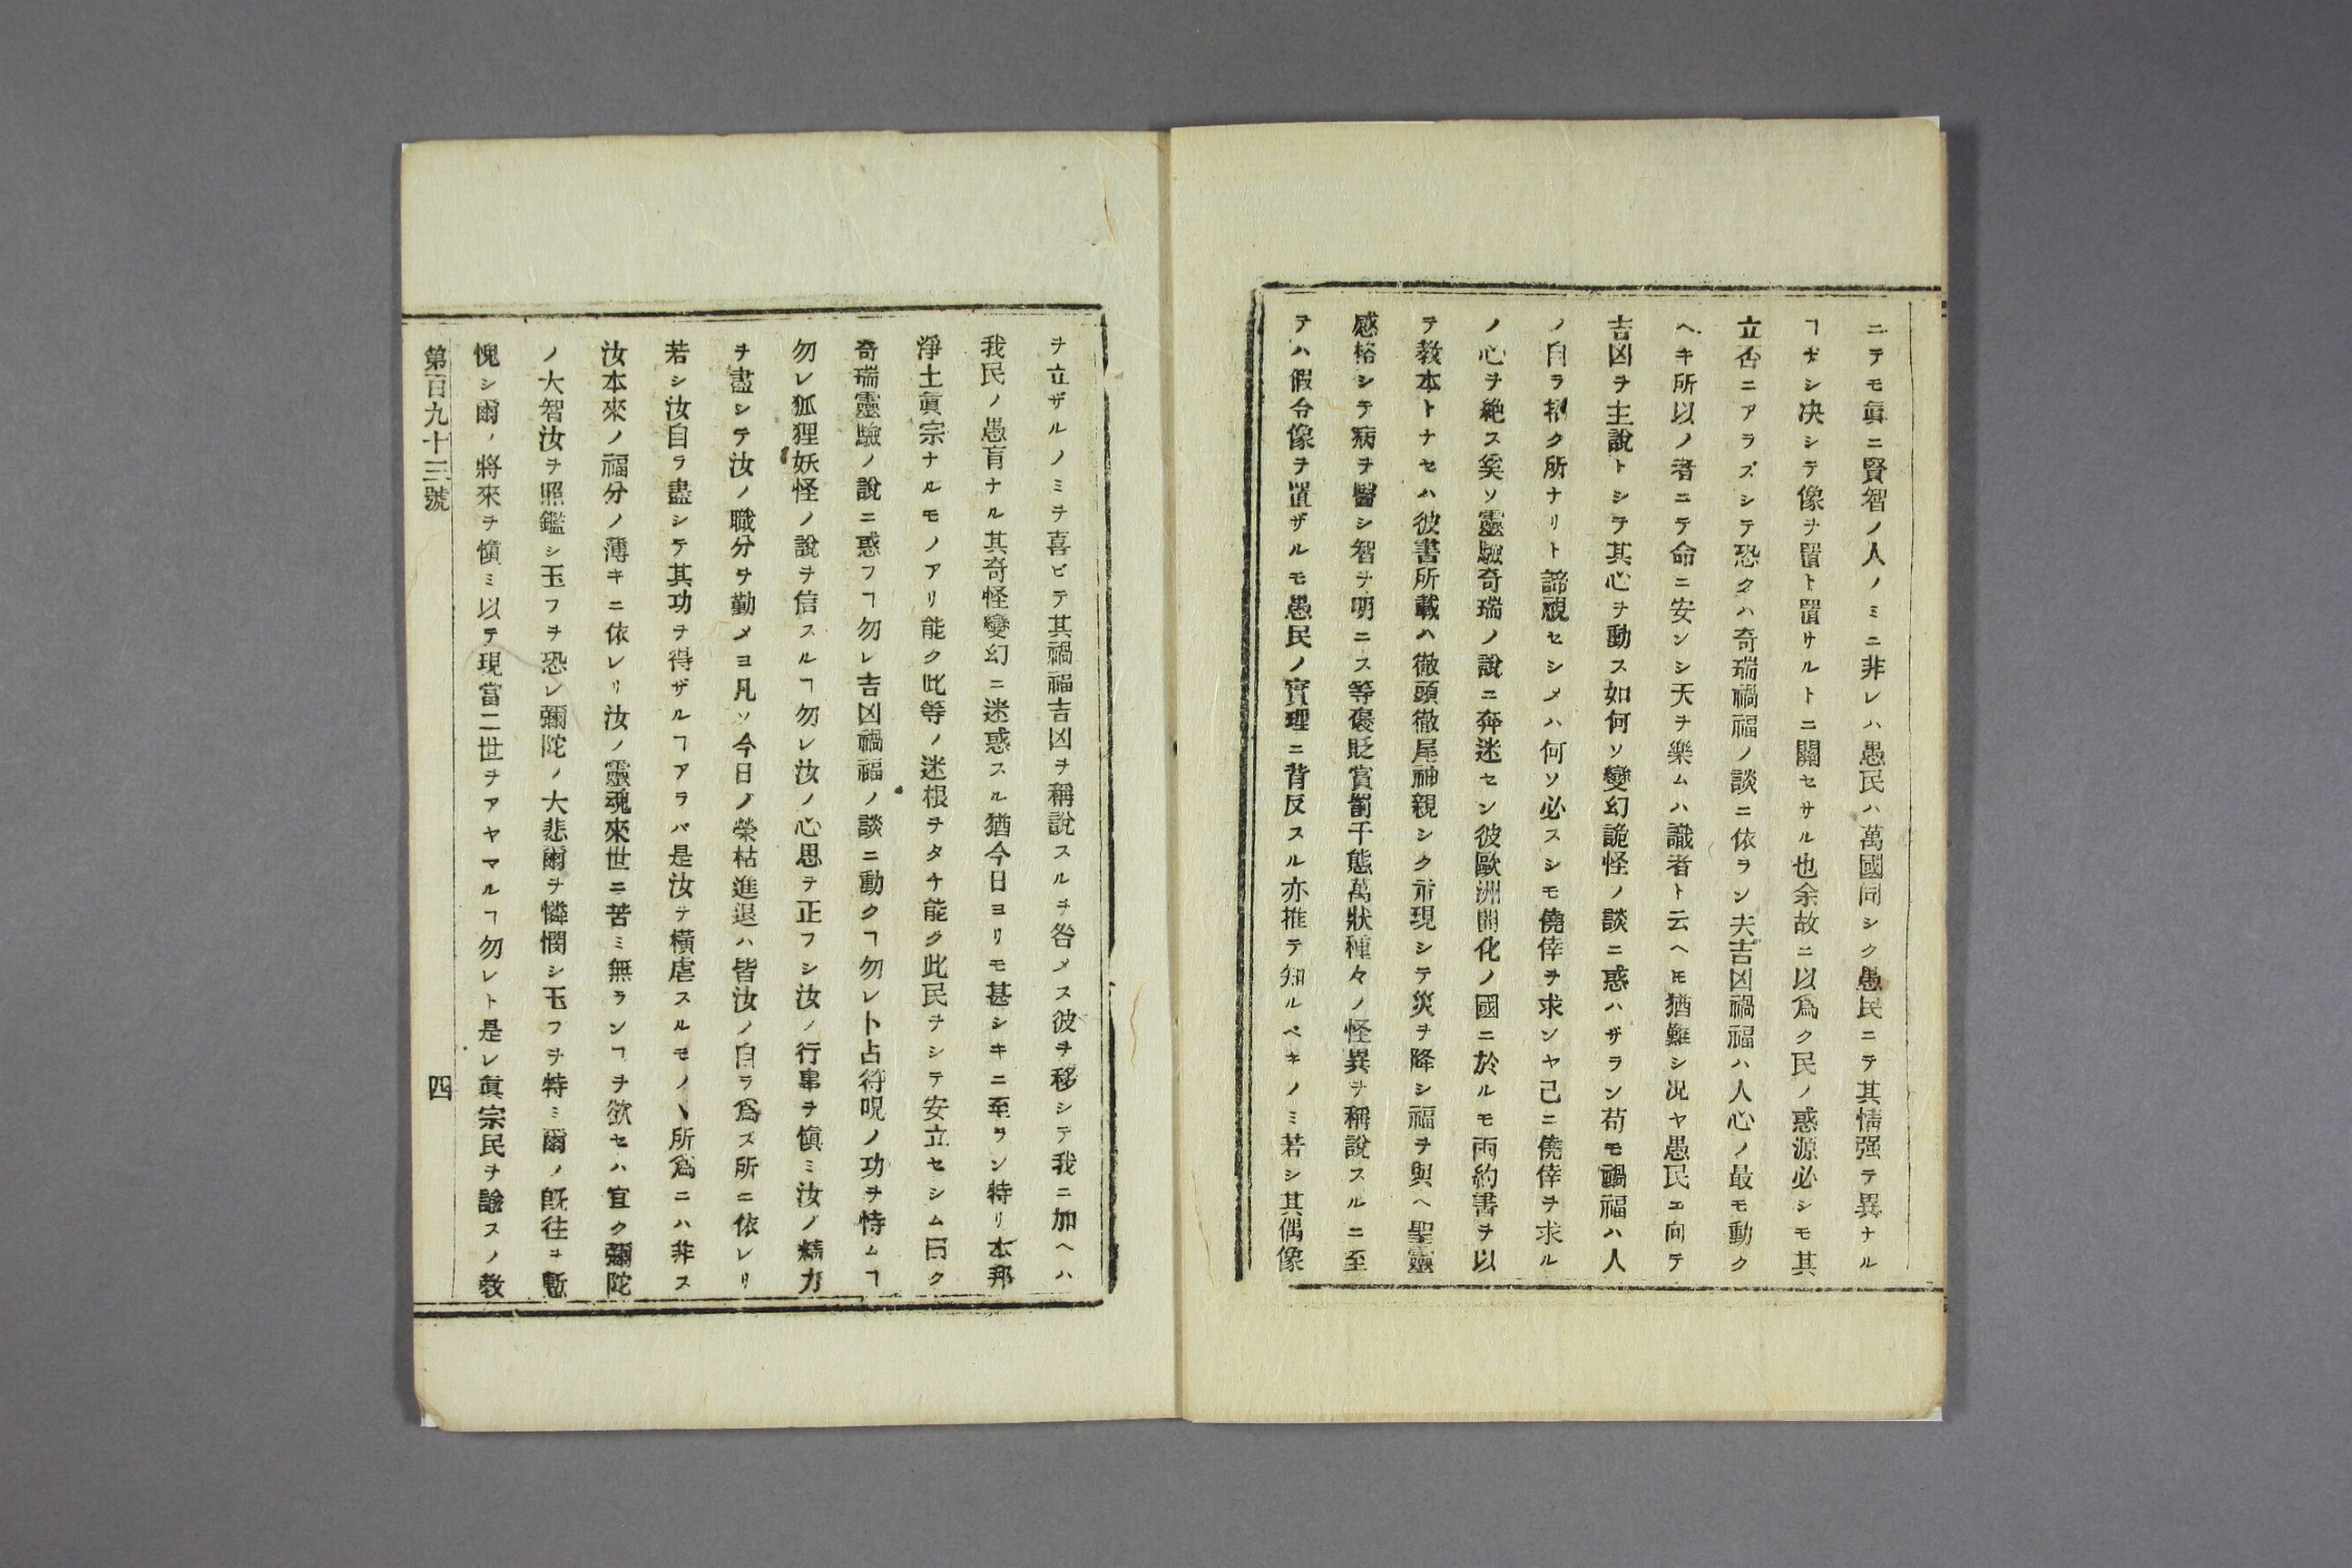 ニテモ眞ニ賢智ノ人ノミニ非レハ愚民ハ萬國同シク愚民ニテ其情强テ異ナル
ヿナシ决シテ像ヲ置ト置サルトニ關セサル也余故ニ以爲ク民ノ惑源必シモ其
立否ニアラズシテ恐クハ奇瑞禍福ノ談ニ依ラン夫吉凶禍福ハ人心ノ最モ動ク
ヘキ所以ノ者ニテ命ニ安ンシ天ヲ樂ムハ識者ト云ヘ𪜈猶難シ况ヤ愚民エ向テ
吉凶ヲ主說トシテ其心ヲ動ス如何ソ變幻詭怪ノ談ニ惑ハザラン苟モ禍福ハ人
ノ自ラ招ク所ナリト諦視セシメハ何ソ必スシモ僥倖ヲ求ンヤ己ニ僥倖ヲ求ル
ノ心ヲ絶ス奚ソ靈驗奇瑞ノ說ニ奔迷セン彼歐洲開化ノ國ニ於ルモ兩約書ヲ以
テ教本トナセハ彼書所載ハ徹頭徹尾神親シク示現シテ災ヲ降シ福ヲ與ヘ聖靈
感格シテ病ヲ醫シ智ヲ明ニス等褒貶賞罰千態萬狀種々ノ怪異ヲ稱說スルニ至
テハ假令像ヲ置ザルモ愚民ノ實理ニ背反スル亦推テ知ルベキノミ若シ其偶像
ヲ立ザルノミヲ喜ビテ其禍福吉凶ヲ稱說スルヲ咎メス彼ヲ移シテ我ニ加ヘハ
我民ノ愚盲ナル其奇怪變幻ニ迷惑スル猶今日ヨリモ甚シキニ至ラン特リ本邦
淨土眞宗ナルモノアリ能ク此等ノ迷根ヲタチ能ク此民ヲシテ安立セシム曰ク
奇瑞靈驗ノ說ニ惑フヿ勿レ吉凶禍福ノ談ニ動クヿ勿レ卜占符呪ノ功ヲ恃ムヿ
勿レ狐狸妖怪ノ說ヲ信スルヿ勿レ汝ノ心思ヲ正フシ汝ノ行事ヲ愼ミ汝ノ精力
ヲ盡シテ汝ノ職分ヲ勤メヨ凡ソ今日ノ榮枯進退ハ皆汝ノ自ラ爲ズ所ニ依レリ
若シ汝自ラ盡シテ其功ヲ得ザルヿアラバ是汝ヲ橫虐スルモノヽ所爲ニハ非ス
汝本來ノ福分ノ薄キニ依レリ汝ノ靈魂來世ニ苦ミ無ランヿヲ欲セハ宜ク彌陀
ノ大智汝ヲ照鑑シ玉フヲ恐レ彌陀ノ大悲爾ヲ憐憫シ玉フヲ特ミ爾ノ旣往ヲ慙
愧シ爾ノ將來ヲ愼ミ以テ現當二世ヲアヤマルヿ勿レト是レ眞宗民ヲ諭スノ教
第百九十三號 四